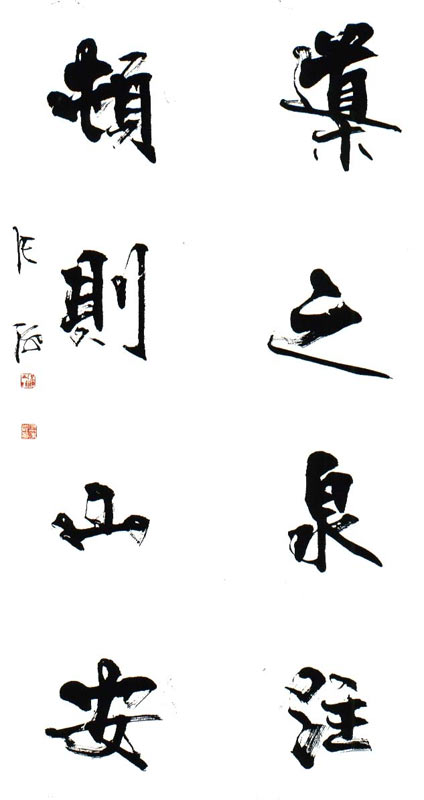 導之泉注
頓則山安
張海